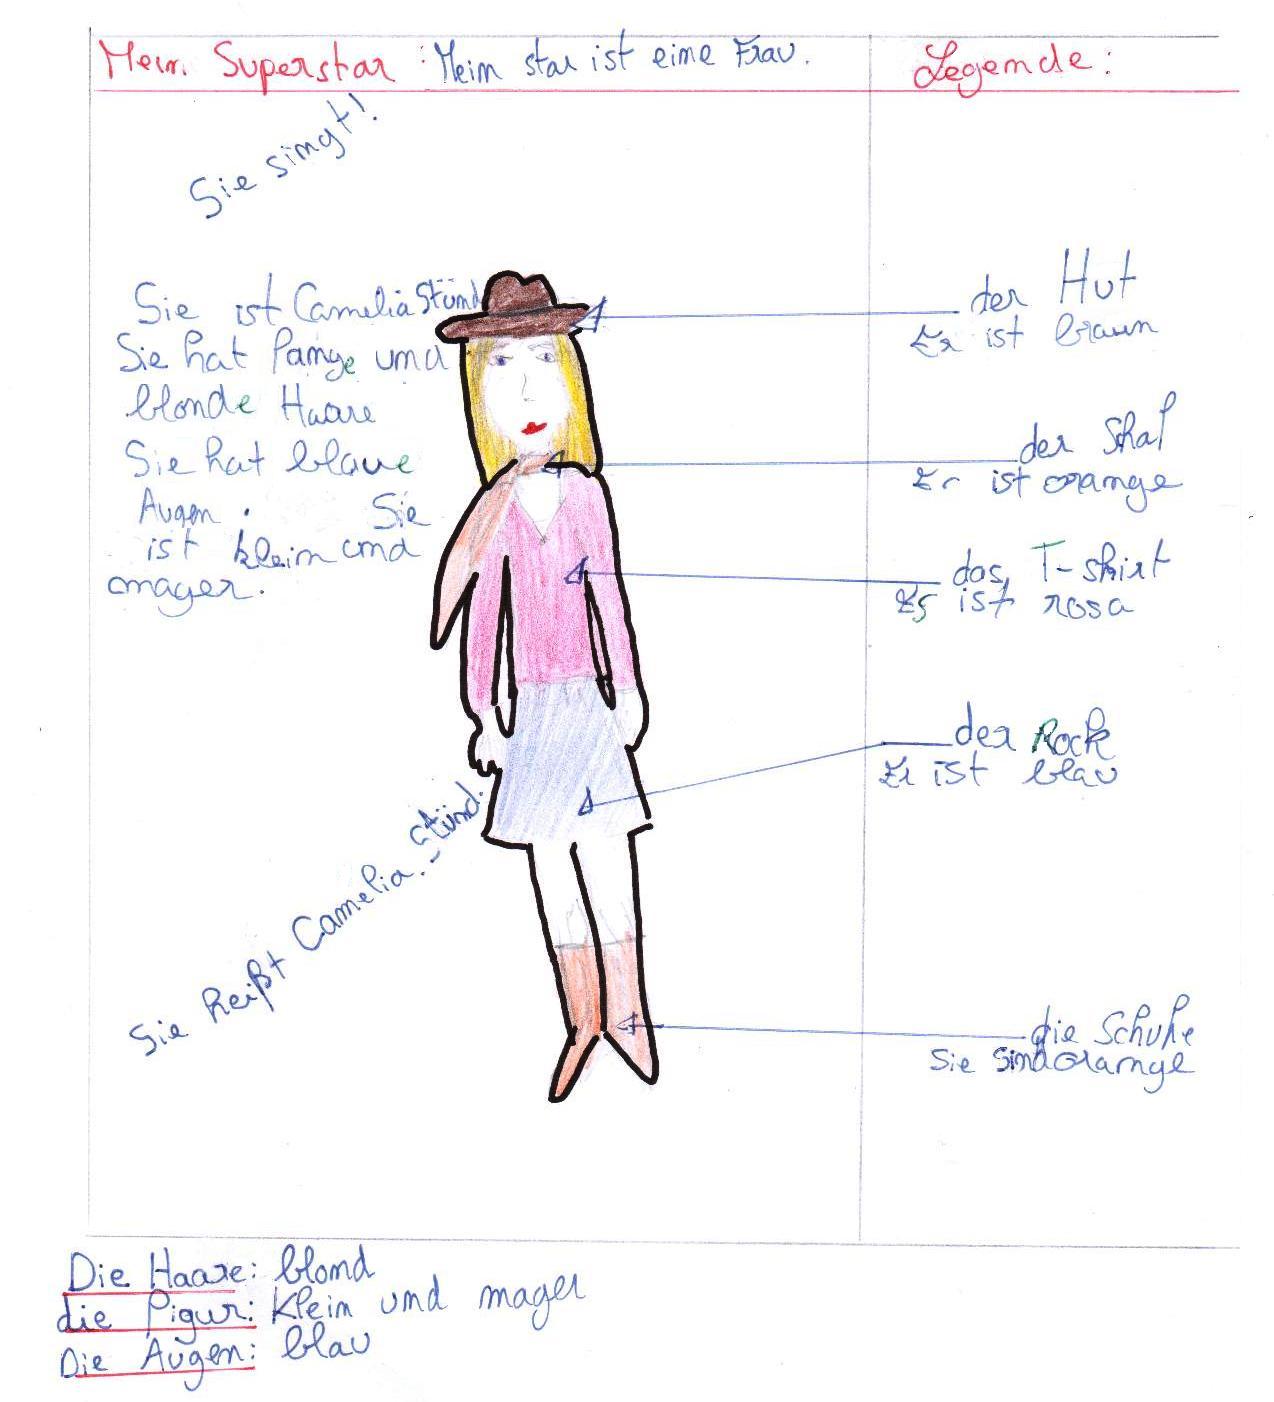 Mein Superstar : Mein star ist eine Frau.
Legende :
Sie singt!
Sie ist Camelia Stünd
Sie hat lange und
blonde Haare
Sie hat blaue
Augen . Sie
ist klein und
mager.
Sie heißt Camelia. Stünd.
der Hut
Er ist braun
der Shal
Er ist orange
das T-shirt
Es ist rosa
der Rock
Er ist blau
die Schuhe
Sie sind orange
Die Haare: blond
die Figur: Klein und mager
Die Augen: blau